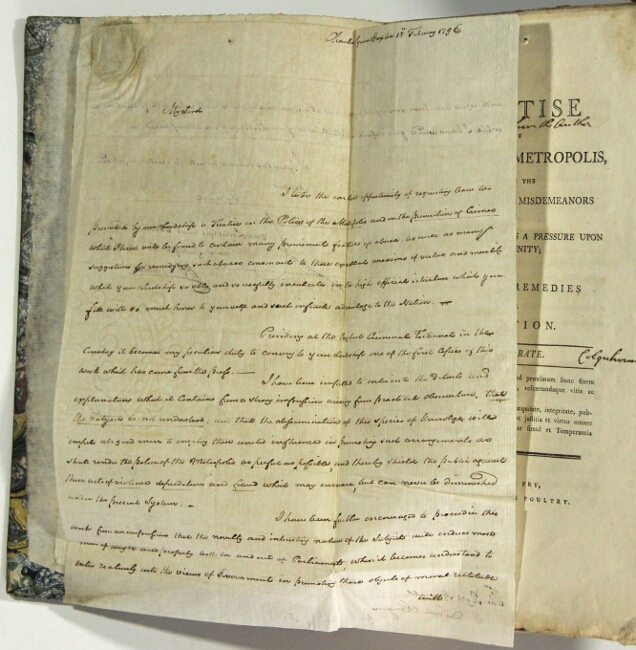 Charles Square Hoxton 18 February 1796
My Lord
I take the earliest opportunity of requesting leave to
present to your Lordship a Treatise on the Police of the Metropolis and on the prevention of Crimes
which I trust will be found to contain many prominent features of abuse as well as many
suggestions for remedying such abuses consonant to those excellent measures of virtue and morality
which your Lordship so ably and successfully inculcates in the high official situation which you
fill with so much honor to yourself and such infinite advantage to the Nation.
Presiding at the highest Criminal Tribunal in this
Country it becomes my peculiar duty to convey to your Lordship one of the first Copies of this
work which has come from the press.
I have been impelled to enter into the details and
explanations which it contains from a strong impression arising from practical observation, that
the Subject is not understood, and that the dissemination of this species of knowledge will
impel all good men to employ their united influence in promoting such arrangements as
shall render the police of the Metropolis as perfect as possible and thereby shield the public against
those acts of violence depredations and fraud which may encrease, but can never be diminished
under the present System.
I have been further encouraged to proceed in this
work from an impression that the novelty and interesting nature of the Subject will induce most
men of weight and property both in and out of Parliament when it becomes understood to
enter zealously into the views of Government in promoting those objects of moral rectitude
with
TISE
from the Author
METROPOLIS,
THE
MISDEMEANORS
A PRESSURE UPON
NITY;
REMEDIES
ION.
RATE. Colquhoun
proximum hunc finem
refrænandaque vitia ac
integritate, pub-
justitia et virtus omnes
simul et Temperantia
RY,
POULTRY.